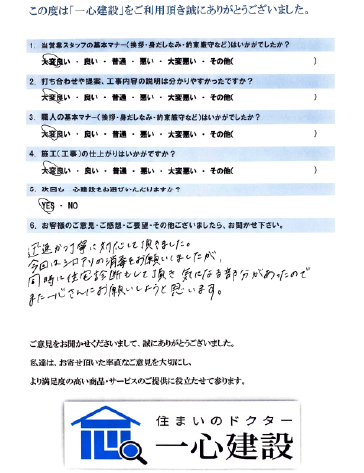 この度は「一心建設」をご利用頂き誠にありがとうございました。
1. 当営業スタッフの基本マナー(挨拶・身だしなみ・約束厳守など)はいかがでしたか?
大変良い ・ 良い ・ 普通 ・ 悪い ・ 大変悪い ・ その他( )
2. 打ち合わせや提案、工事内容の説明は分かりやすかったですか?
大変良い ・ 良い ・ 普通 ・ 悪い ・ 大変悪い ・ その他( )
3. 職人の基本マナー(挨拶・身だしなみ・約束厳守など)はいかがでしたか?
大変良い ・ 良い ・ 普通 ・ 悪い ・ 大変悪い ・ その他( )
4. 施工(工事)の仕上がりはいかがですか?
大変良い ・ 良い ・ 普通 ・ 悪い ・ 大変悪い ・ その他( )
5. 次回も一心建設をお選びいただけますか?
YES ・ NO
6. お客様のご意見・ご感想・ご要望・その他ございましたら、お聞かせ下さい。
迅速かつ丁寧に対応して頂きました。
今回はシロアリの消毒をお願いしましたが、
同時に住宅診断もして頂き 気になる部分があったので
また一心さんにお願いしようと思います。
ご意見をお聞かせくださいまして、誠にありがとうございました。
私達は、お寄せ頂いた率直なご意見を大切にし、
より満足度の高い商品・サービスのご提供に役立たせて参ります。
住まいのドクター
一心建設